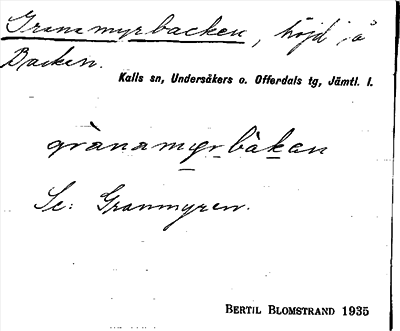 Granamyrbacken, höjd å
Backen.
Kalls sn, Undersåkers o. Offerdals tg, Jämtl. l.
grànamyrbàkan
Se: Granmyren.
BERTIL BLOMSTRAND 1935